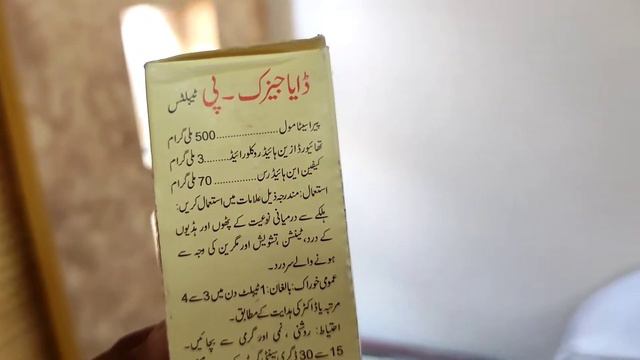 ڈایا جیزک ۔ پی ٹیبلٹس
پیراسیٹامول......................500 ملی گرام
تھائیورڈازین ہائیڈروکلورائیڈ.........3 ملی گرام
کیفین این ہائیڈرس...............70 ملی گرام
استعمال: مندرجہ ذیل علامات میں استعمال کریں:
ہلکے سے درمیانی نوعیت کے پٹھوں اور ہڈیوں
کے درد، ٹینشن، تشویش اور مگرین کی وجہ سے
ہونے والے سردرد۔
عمومی خوراک: بالغان: 1 ٹیبلٹ دن میں 3 سے 4
مرتبہ یا ڈاکٹر کی ہدایت کے مطابق۔
احتیاط: روشنی، نمی اور گرمی سے بچائیں۔
15 سے 30 ڈگری سینٹی گریڈ